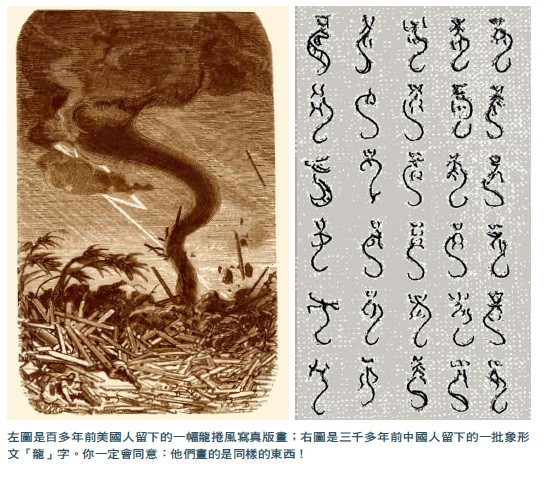 左圖是百多年前美國人留下的一幅龍捲風寫真版畫；右圖是三千多年前中國人留下的一批象形
文「龍」字。你一定會同意：他們畫的是同樣的東西！